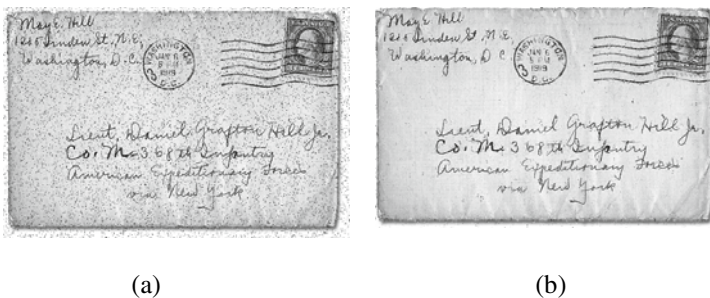 May E. Hill
Linden St., N.E.,
Washington, D.C.
WASHINGTON
JAN 6
1919
D.C.
Lieut. Daniel Grafton Hill Jr.
Co. M. 368th Infantry
American Expeditionary Forces
via New York
(a)
May E. Hill
Linden St., N.E.
Washington, D.C.
WASHINGTON
JAN 6
1919
D.C.
Lieut. Daniel Grafton Hill Jr.
Co. M. 368th Infantry
American Expeditionary Forces
via New York
(b)